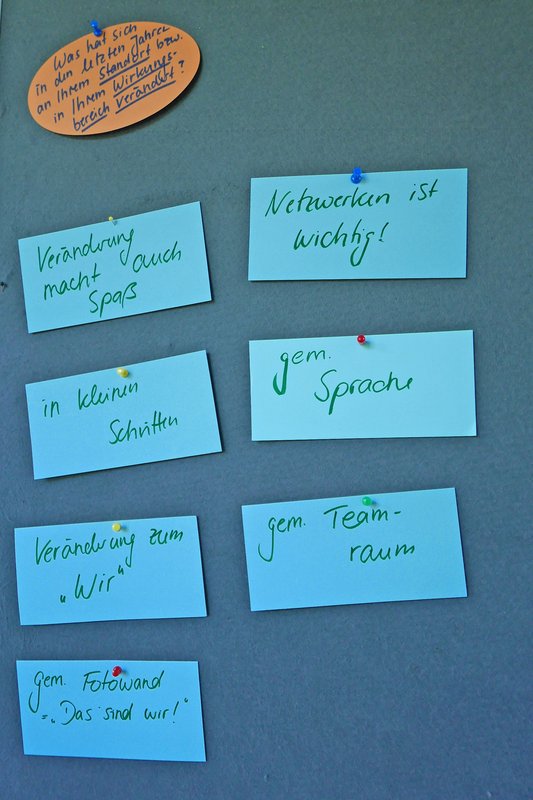 Was hat sich
in den letzten Jahren
an Ihrem Standort bzw.
in Ihrem Wirkungs-
bereich verändert?
Veränderung
macht auch
Spaß
in kleinen
Schritten
Veränderung zum
„Wir“
gem. Fotowand
=„Das sind wir!“
Netzwerken ist
wichtig!
gem.
Sprache
gem. Team-
raum